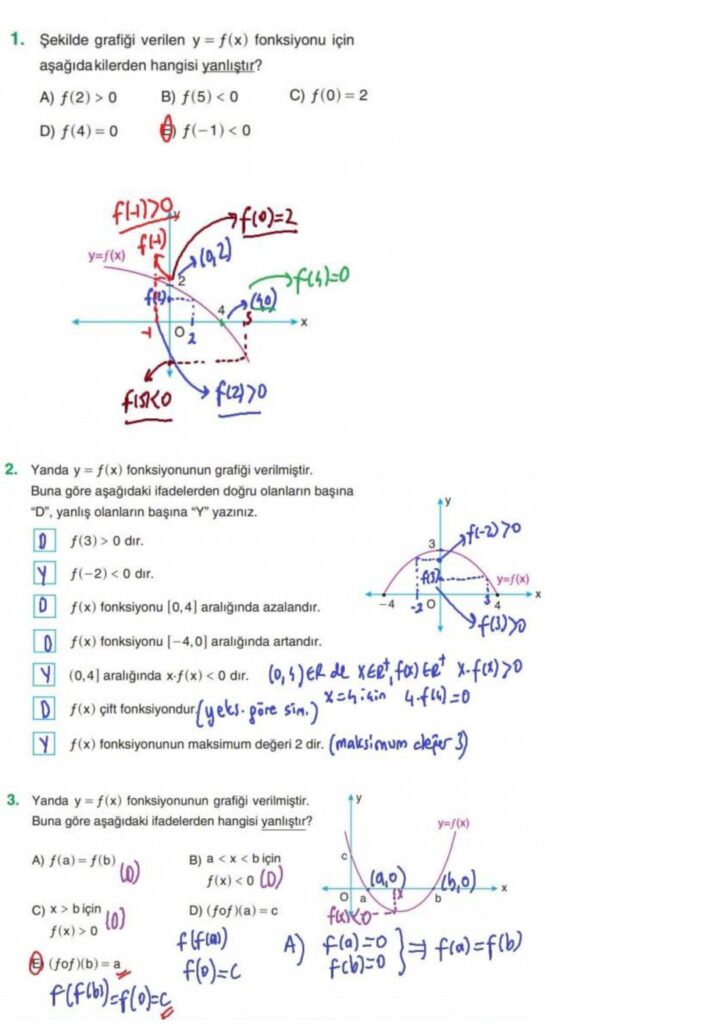 1. Şekilde grafiği verilen y = f(x) fonksiyonu için
aşağıdakilerden hangisi yanlıştır?
A) f(2) > 0 B) f(5) < 0 C) f(0) = 2
D) f(4) = 0 E) f(−1) < 0
f(-1)>0 y f(0)=2
f(-1) (0,2)
y=f(x)
2 f(4)=0
f(2) 4 (4,0)
5
-1 O 2 x
f(5)<0 f(2)>0
2. Yanda y = f(x) fonksiyonunun grafiği verilmiştir.
Buna göre aşağıdaki ifadelerden doğru olanların başına
“D”, yanlış olanların başına “Y” yazınız.
D f(3) > 0 dır.
Y f(−2) < 0 dır.
D f(x) fonksiyonu [0,4] aralığında azalandır.
D f(x) fonksiyonu [−4,0] aralığında artandır.
Y (0,4] aralığında x·f(x) < 0 dır. (0,4)∈R de x∈R⁺, f(x)∈R⁺ x·f(x)>0
x=4 için 4·f(4)=0
D f(x) çift fonksiyondur. (y eks. göre sim.)
Y f(x) fonksiyonunun maksimum değeri 2 dir. (maksimum değer 3)
y
f(-2)>0
3
f(3) y=f(x)
−4 -2 O 3 4 x
f(3)>0
3. Yanda y = f(x) fonksiyonunun grafiği verilmiştir.
Buna göre aşağıdaki ifadelerden hangisi yanlıştır?
A) f(a) = f(b) (D) B) a < x < b için
f(x) < 0 (D)
C) x > b için (D) D) (fof)(a) = c
f(x) > 0 f(f(a))
f(0)=c
E) (fof)(b) = a
f(f(b))=f(0)=c
y
y=f(x)
c
(a,0) (b,0)
O a x b x
f(x)<0
A) f(a)=0
f(b)=0 } ⇒ f(a)=f(b)